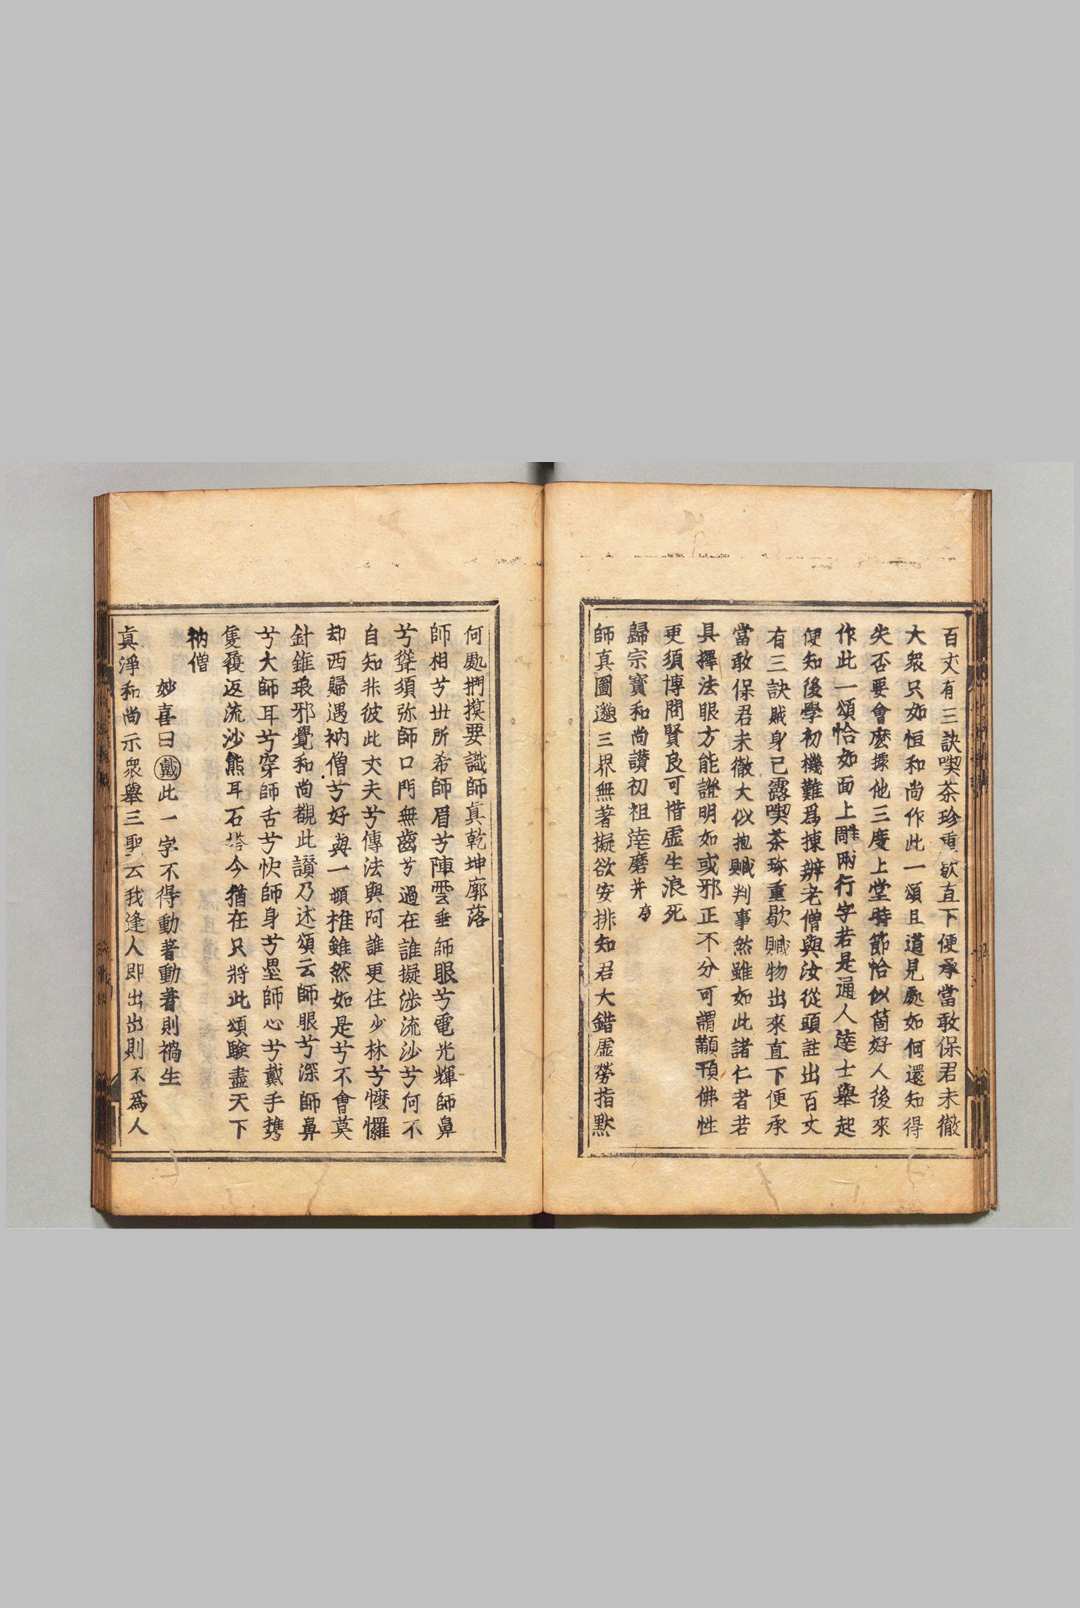 百丈有三訣喫茶珍重歇直下便承當敢保君未徹
大衆只如恒和尚作此一頌且道見處如何還知得
失否要會麽據他三度上堂時節恰似箇好人後來
作此一頌恰如面上雕兩行字若是通人達士舉起
便知後學初機難爲揀辨老僧與汝從頭註出百丈
有三訣賊身已露喫茶珎重歇贓物出來直下便承
當敢保君未徹大似抱贓判事然雖如此諸仁者若
具擇法眼方能證明如或邪正不分可謂顢頇佛性
更須博問賢良可惜虛生浪死
歸宗寶和尚讃初祖達磨并序
師真圖邈三界無著擬欲安排知君大錯虛勞指默
何處捫摸要識師真乾坤廓落
師相兮世所希師眉兮陣雲垂師眼兮電光輝師鼻
兮聳須弥師口門無齒兮過在誰擬涉流沙兮何不
自知非彼此丈夫兮傳法與阿誰更住少林兮懡㦬
却西歸遇衲僧兮好與一頓推雖然如是兮不會莫
針錐瑯邪覺和尚覩此讃乃述頌云師眼兮深師鼻
兮大師耳兮穿師舌兮快師身兮墨師心兮戴手携
隻履返流沙熊耳石塔今猶在只將此頌驗盡天下
衲僧
妙喜曰戴此一字不得動著動著則禍生
真淨和尚示衆舉三聖云我逢人即出出則不爲人